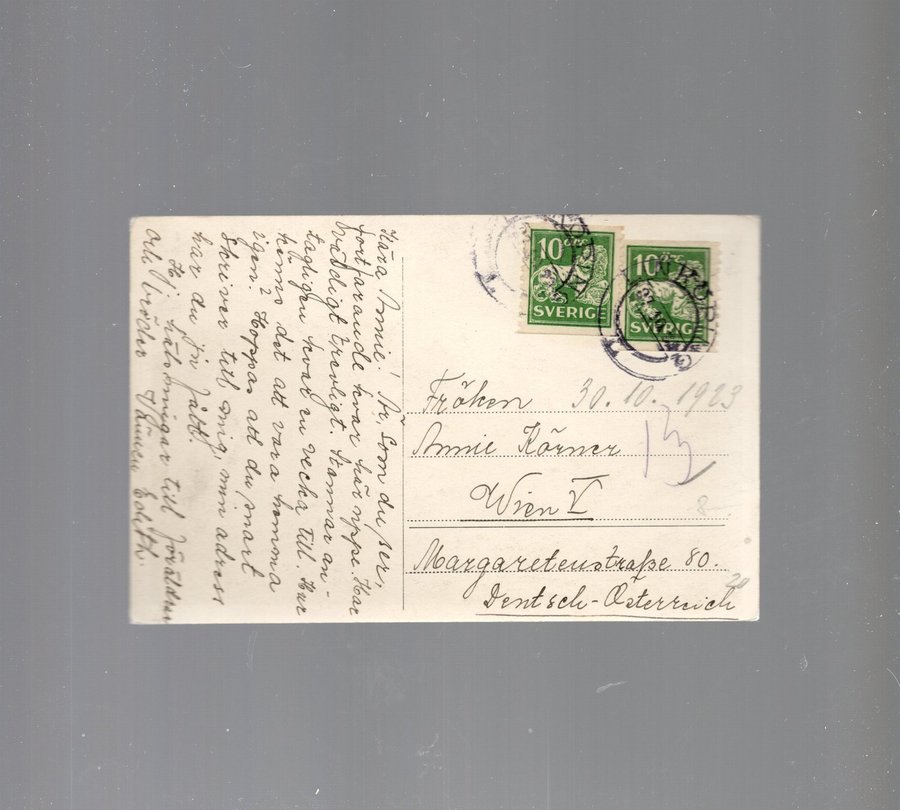 Kära Annie! Är, som du ser,
fortfarande kvar här uppe. Har
väldigt trevligt. Stannar an-
tagligen kvar en vecka till. Hur
känns det att vara hemma
igen? Hoppas att du snart
skriver till mig, min adress
har du ju fått.
Hj. hälsningar till föräldrar
och bröder Vännen Edith.
10 ÖRE
SVERIGE
10 ÖRE
SVERIGE
Fröken 30.10.1923
Annie Körner
13
Wien V
8-
Margaretenstraße 80.
20
Deutsch-Österreich